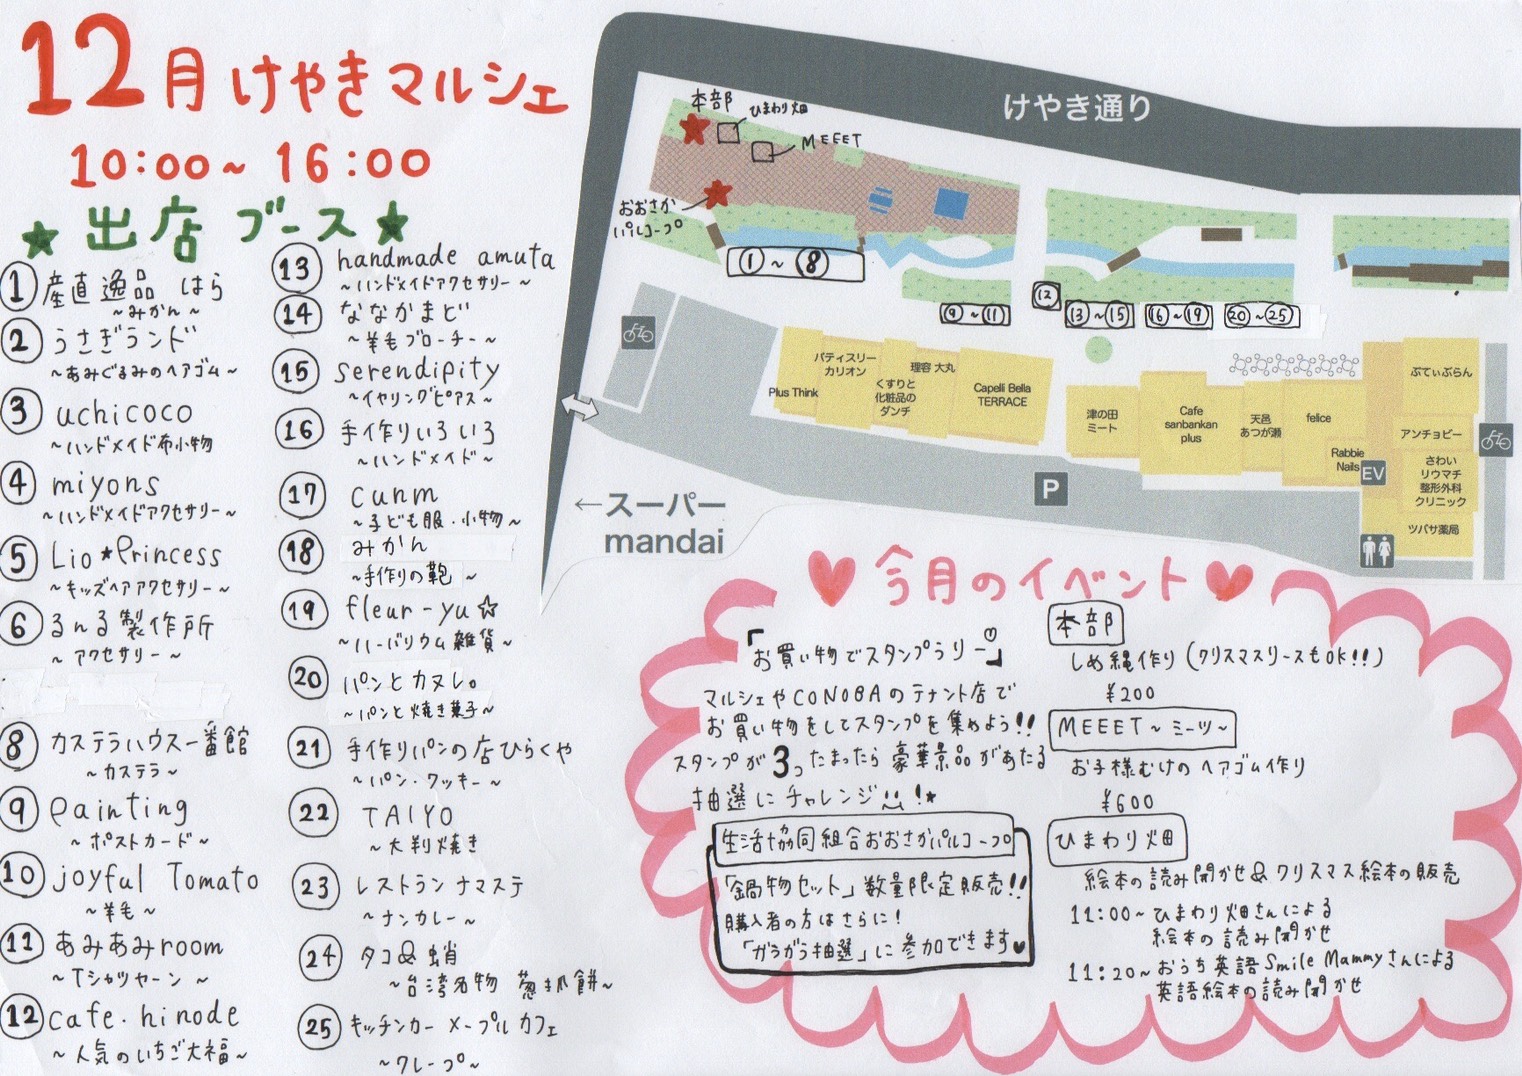 12月けやきマルシェ
10:00～16:00
★出店ブース★
① 産直逸品 はら
～みかん～
② うさぎランド
～あみぐるみのヘアゴム～
③ uchicoco
～ハンドメイド布小物
④ miyons
～ハンドメイドアクセサリー～
⑤ Lio★Princess
～キッズヘアアクセサリー～
⑥ るんる製作所
～アクセサリー～
⑧ カステラハウス一番館
～カステラ～
⑨ painting
～ポストカード～
⑩ joyful Tomato
～羊毛～
⑪ あみあみroom
～Tシャツヤーン～
⑫ cafe.hinode
～人気のいちご大福～
⑬ handmade amuta
～ハンドメイドアクセサリー～
⑭ ななかまど
～羊毛ブローチー～
⑮ serendipity
～イヤリングピアス～
⑯ 手作りいろいろ
～ハンドメイド～
⑰ cunm
～子ども服・小物～
⑱ みかん
～手作りの鞄～
⑲ fleur-yu☆
～ハーバリウム雑貨～
⑳ パンとカヌレ。
～パンと焼き菓子～
㉑ 手作りパンの店ひらくや
～パン・クッキー～
㉒ TAIYO
～大判焼き
㉓ レストランナマステ
～ナンカレー～
㉔ タコ&蛸
～台湾名物 葱抓餅～
㉕ キッチンカー メープルカフェ
～クレープ～
けやき通り
本部
ひまわり畑
MEEET
おおさか
パルコープ
①～⑧
⑨～⑪
⑫
⑬～⑮
⑯～⑲
⑳～㉕
Plus Think
パティスリー
カリオン
くすりと
化粧品の
ダンチ
理容 大丸
Capelli Bella
TERRACE
津の田
ミート
Cafe
sanbankan
plus
天邑
あつが瀬
felice
Rabbie
Nails
EV
ぷてぃぶらん
アンチョビー
さわい
リウマチ
整形外科
クリニック
ツバサ薬局
P
←スーパー
mandai
♥今月のイベント♥
「お買い物でスタンプラリー♡」
マルシェやCONOBAのテナント店で
お買い物をしてスタンプを集めよう!!
スタンプが3つたまったら豪華景品があたる
抽選にチャレンジ!★
生活協同組合おおさかパルコープ
「鍋物セット」数量限定販売!!
購入者の方はさらに!
「ガラガラ抽選」に参加できます♥
本部
しめ縄作り(クリスマスリースもOK!!)
¥200
MEEET～ミーツ～
お子様むけのヘアゴム作り
¥600
ひまわり畑
絵本の読み聞かせ&クリスマス絵本の販売
11:00～ひまわり畑さんによる
絵本の読み聞かせ
11:20～おうち英語Smile Mammyさんによる
英語絵本の読み聞かせ